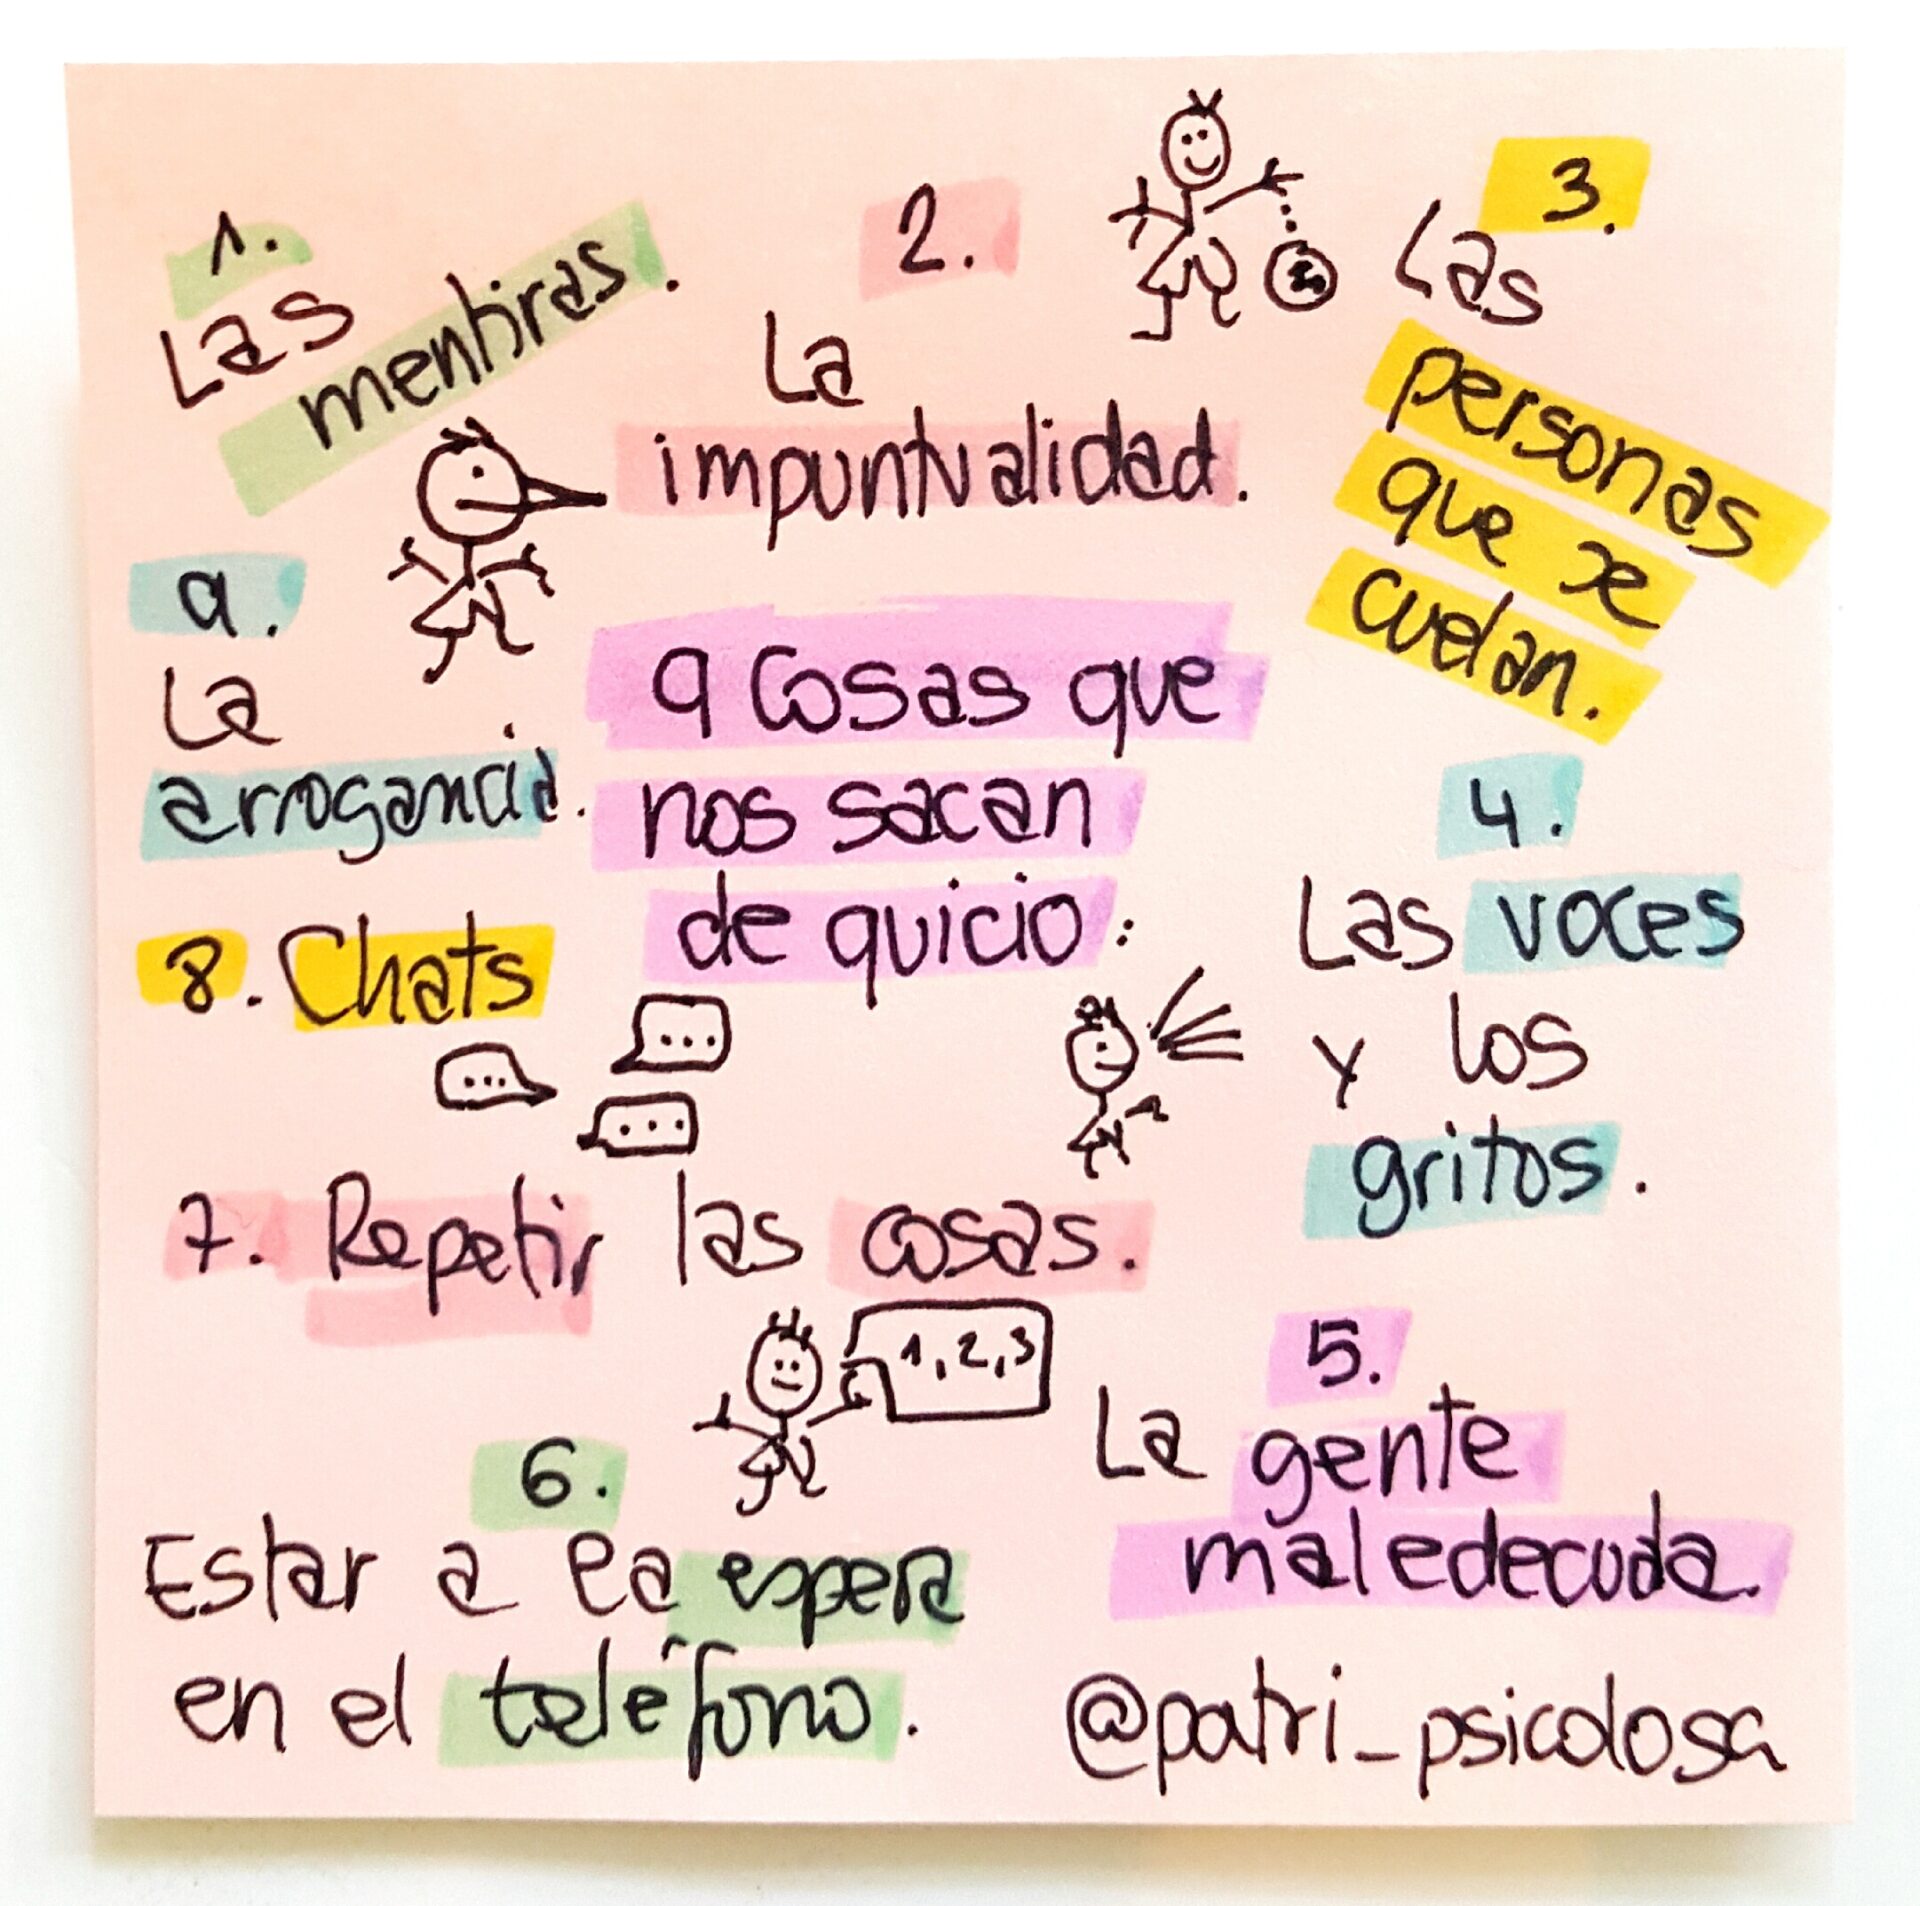 9 Cosas que
nos sacan
de quicio:
1.
Las
mentiras.
2.
La
impuntualidad.
3.
Las
personas
que se
cuelan.
4.
Las voces
y los
gritos.
5.
La gente
maledecuda.
6.
Estar a la espera
en el teléfono.
7. Repetir las cosas.
1,2,3
8. Chats
...
...
...
9.
La
arrogancia.
@patri_psicologa